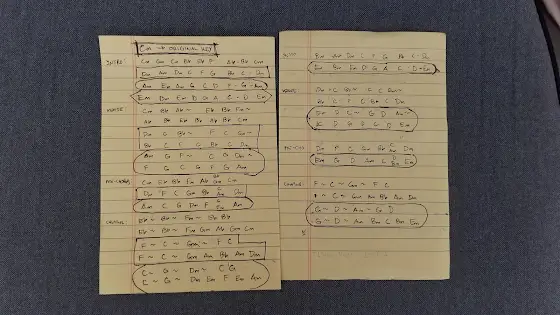 Cm → ORIGINAL KEY
INTRO
Cm Gm Cm Eb Bb F Ab-Bb Cm
Dm Am Dm F G Bb C-Dm
Am Em Am G C D F-G-Am
Em Bm Em D G A C-D Em
VERSE
Cm Bb Ab~ Eb Bb Fm~
Ab Bb Eb Bb Ab Bb Cm
Dm C Bb~ F C Gm~
Bb C F C Bb C Dm
Am G F~ C G Dm~
F G C G F G Am
PRE-CHORUS
Cm Eb Bb Fm Ab Cm
Dm F C Gm Bb Dm
Am C G Dm F Am
CHORUS
Eb~ Bb~ Fm~ Eb Bb
Eb~ Bb~ Fm Gm Ab Gm Cm
F~ C~ Gm~ F C
F~ C~ Gm Am Bb Am Dm
C~ G~ Dm~ C G
C~ G~ Dm Em F Em Am
Em Bm Em D G A C-D-Em
Dm F C Gm Bb Dm
Em G D Am C Em
CHORUS
F~ C~ Gm~ F C
G~ D~ Am~ G D
G~ D~ Am Bm C Bm Em